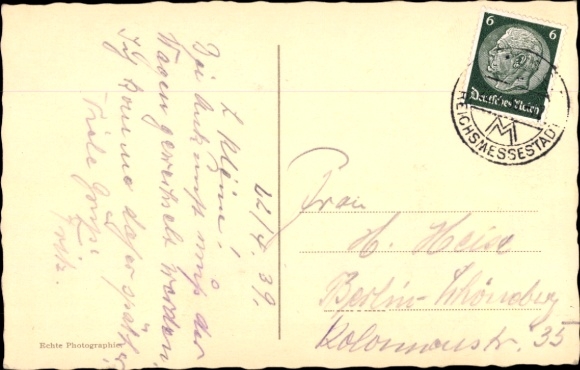 22/4. 39.
L. Kleine!
Bei Ankunft muß der
Wagen gewaschen werden,
Ich komme daher später.
Viele Grüße
Fritz.
6 6
Deutsches Reich
REICHSMESSESTADT
M
Frau
H. Heise
Berlin-Schöneberg
Kolonnenstr. 35
Echte Photographie